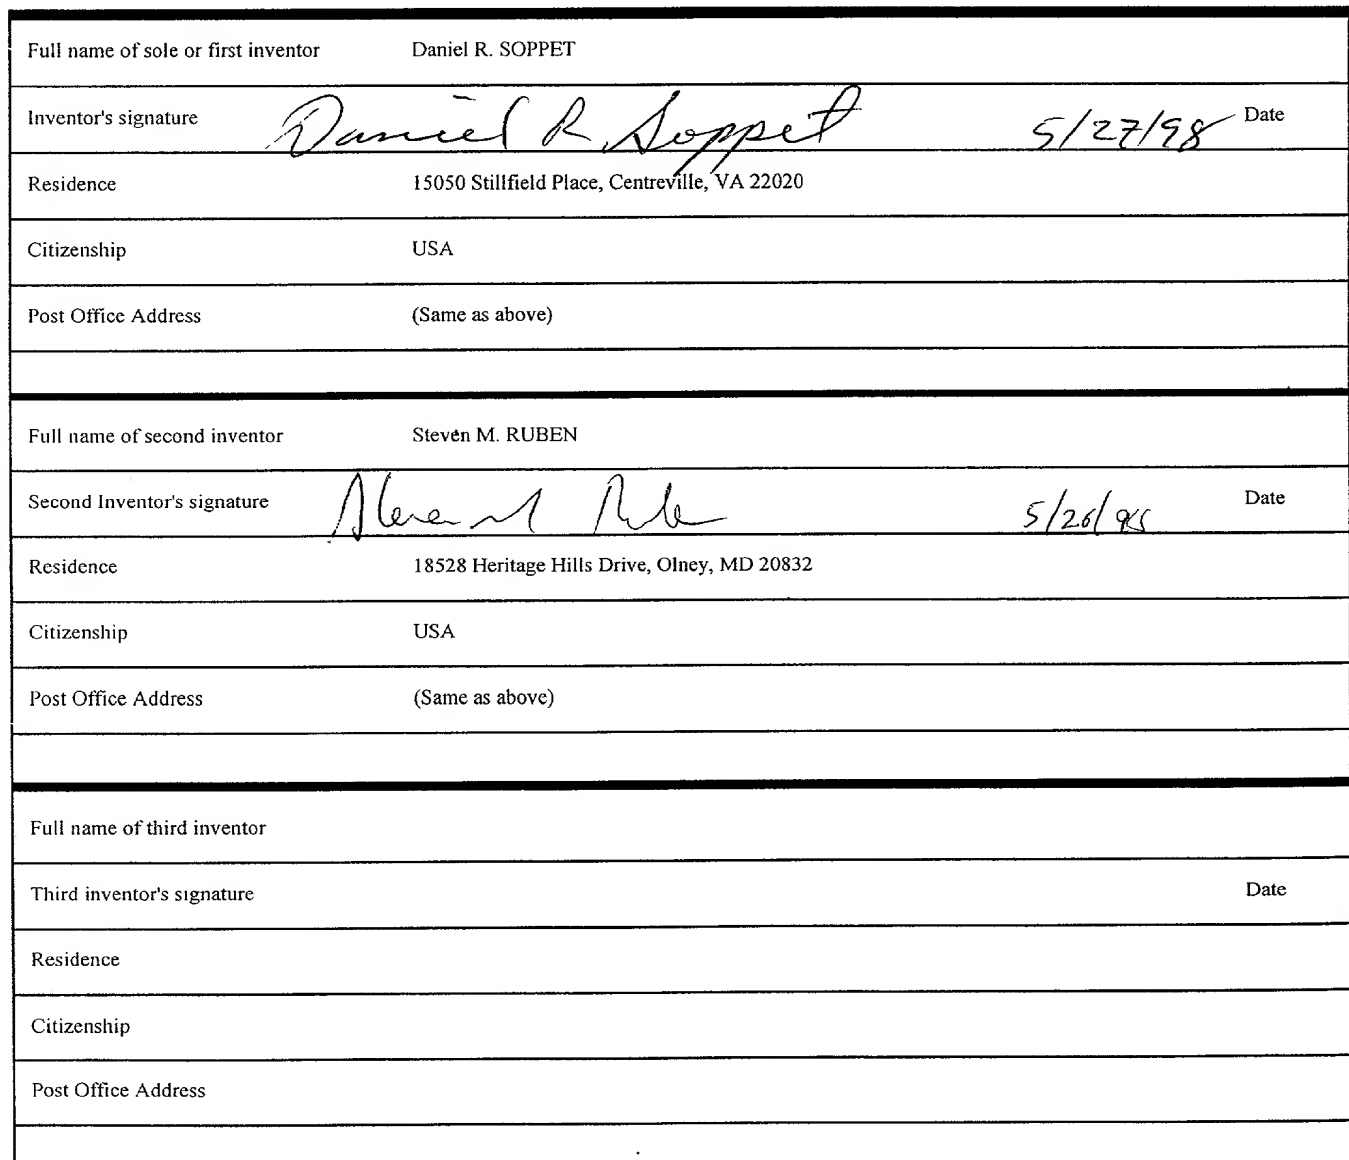 Full name of sole or first inventor Daniel R. SOPPET
Inventor's signature Daniel R. Soppet 5/27/98 Date
Residence 15050 Stillfield Place, Centreville, VA 22020
Citizenship USA
Post Office Address (Same as above)
Full name of second inventor Steven M. RUBEN
Second Inventor's signature 5/26/98 Date
Residence 18528 Heritage Hills Drive, Olney, MD 20832
Citizenship USA
Post Office Address (Same as above)
Full name of third inventor
Third inventor's signature Date
Residence
Citizenship
Post Office Address